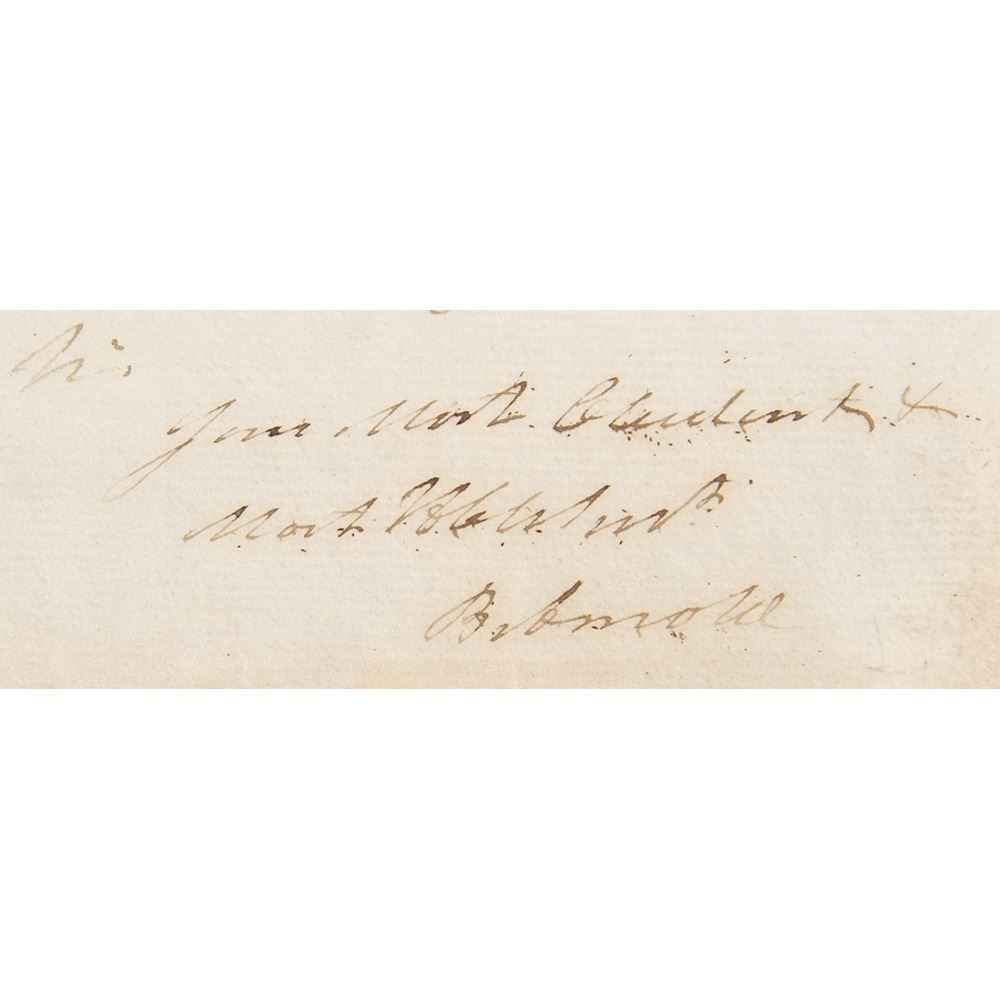 Sir,
Your Most Obedient &
Most Hble Servt
B. Arnold